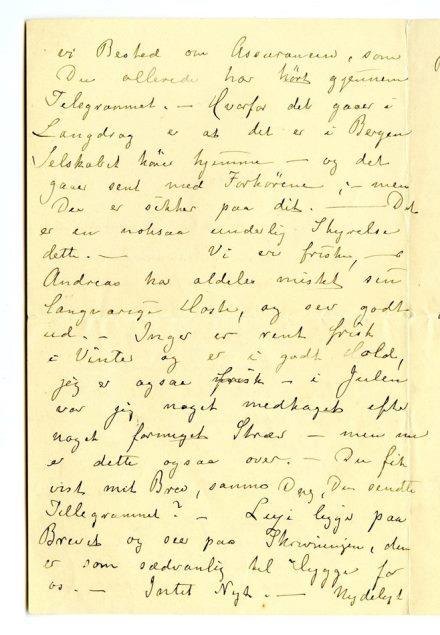 vi Besked om Assurancen, som
Du allerede har hört gjennem
Telegrammet. — Hvorfor det gaaer i
Langdrag er at det er i Bergen
Selskabet hörer hjemme — og det
gaaer sent med Forhörene; — men
Du er sikker paa dit. — Det
er en noksaa underlig Skyrelse
dette. — Vi er friske, —
Andreas har aldeles mistet sin
langvarige Hoste, og ser godt
ud. — Inger er rent frisk
i Vinter og er i godt Hold,
jeg er ogsaa frisk — i Julen
var jeg noget medtaget efter
noget formeget Stræv — men nu
er dette ogsaa over. — Du fik
vist mit Brev, samme Dag, Du sendte
Tillegrammet? — ligge paa
Brevet og see paa Skrivningen, den
er som sædvanlig til Hygge for
os. — Intet Nyt. — Nydeligt